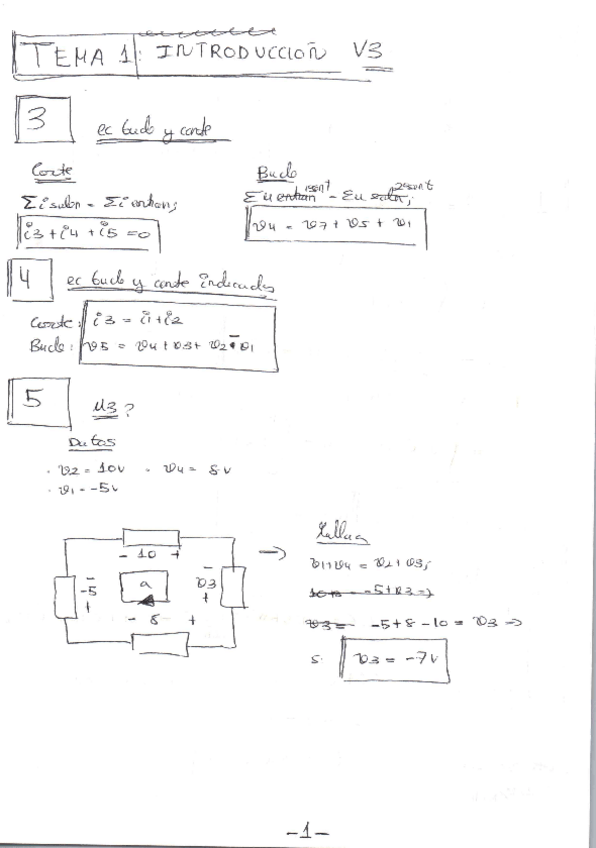 TEMA 1: INTRODUCCIÓN V3
3
ec bucle y corte
Corte
Σi salen = Σi entran;
i3 + i4 + i5 = 0
Bucle
v4 = v7 + v5 + v1
4
ec bucle y corte indicadas
Corte: i3 = i1 + i2
Bucle: v5 = v4 + v3 + v2 - v1
5
u3?
Datos
· v2 = 10v · v4 = 8v
· v1 = -5v
- 10 +
-
-5
+
a
-
v3
+
- 8 +
→
v1+v4 = v2+v3;
-5+8-10 = v3 ⇒
v3 = -7v
-1-